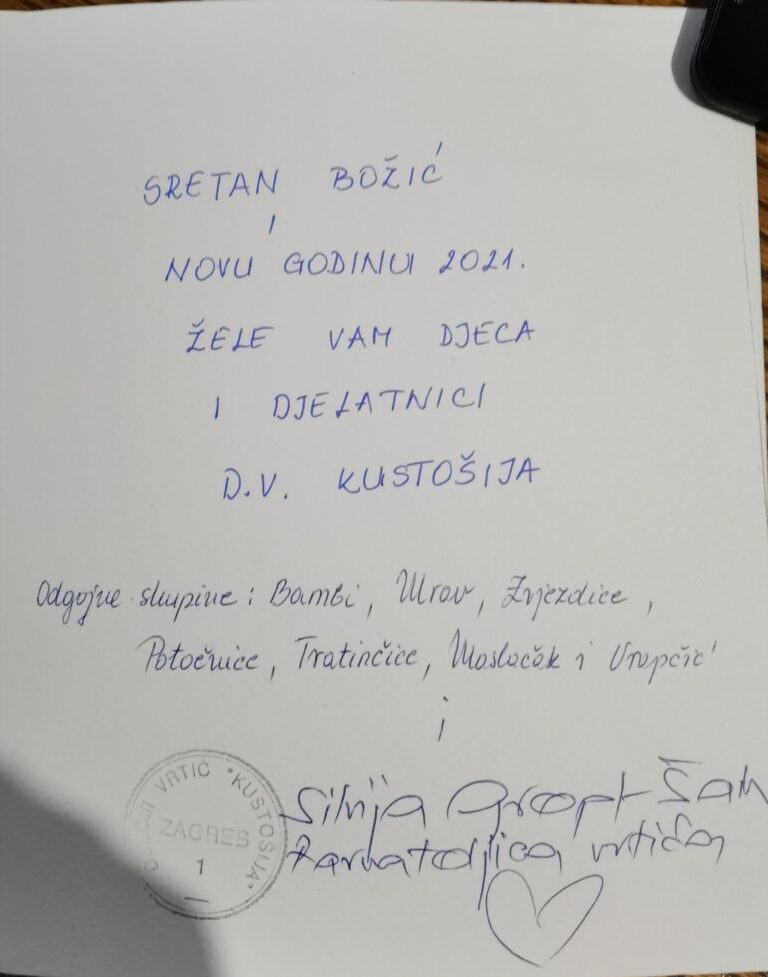 SRETAN BOŽIĆ
I
NOVU GODINU 2021.
ŽELE VAM DJECA
I DJELATNICI
D.V. KUSTOŠIJA
Odgojne skupine: Bambi, Mrav, Zvjezdice,
Potočnice, Tratinčice, Maslačak i Vrapčić
i
Silvija
Ravnateljica vrtića
DJEČJI VRTIĆ "KUSTOŠIJA"
ZAGREB
1